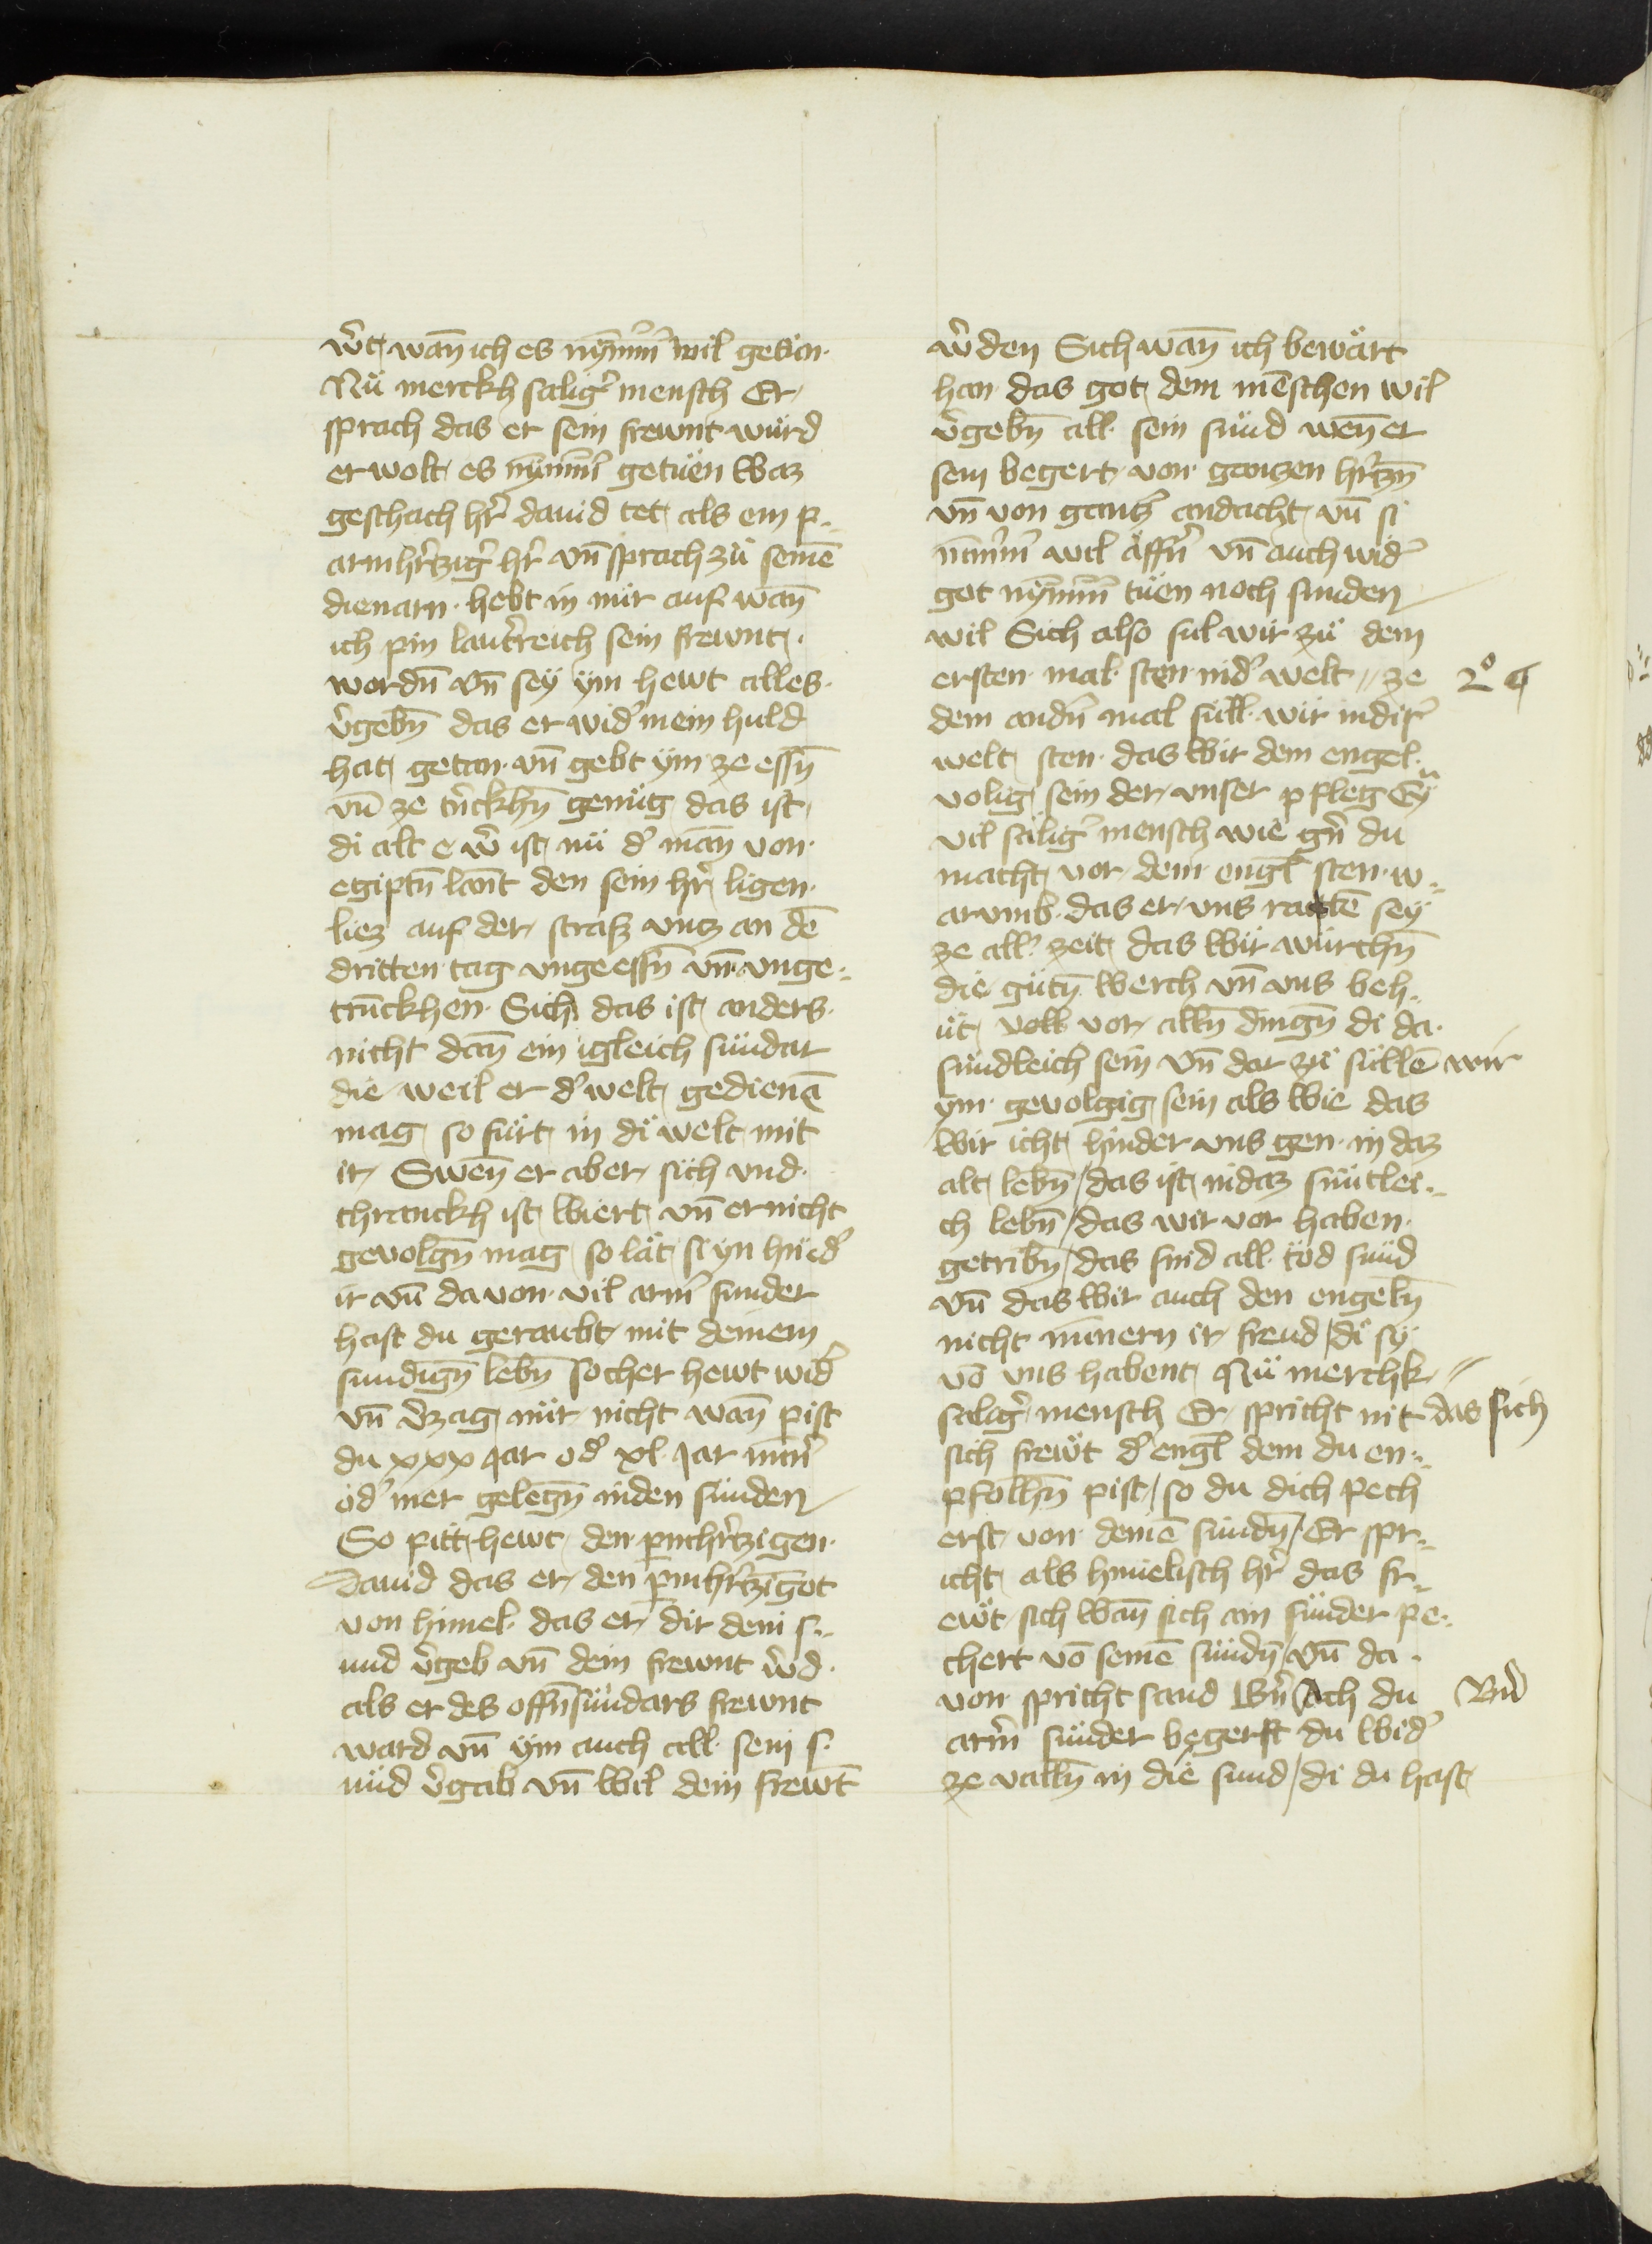 ẘt wan̄ ich es nym̄m̄ wil getůn
Nů merckh saligˀ mensch Er
sprach das er sein frewnt würd
er wolt es nym̄m̄ getůen Waz
geschach hˀr dauid tet als ein p-
armhˀrtzigˀ hˀr vn̄ sprach zů seinē
dienarn hebt in mir auf wan̄
ich pin lautˀreich sein frewnt
wordn̄ vn̄ sey ym hewt alles
vˀgebn̄ das er widˀ mein huld
hat getan vn̄ gebt ym ze essn̄
vn̄ ze trīckhn̄ genůg das ist
di alt e wˀ ist nů dˀ man̄ von
egiptn̄ lant den sein hˀr ligen
liez auf der strasz vntz an dē
dritten tag vngeessn̄ vn̄ vnge-
trūckhen Sich das ist anders
nicht dan̄ ein igleich sündar
die weil er dˀ welt gedienē
mag so fürt in di welt mit
ir Swen̄ er aber sich vnd
chranckh ist Wiert vn̄ er nicht
geuolgn̄ mag so lät si yn hindˀ
ir vn̄ da von vil armˀ sunder
hast du geraubt mit deinem
sundign̄ lebn̄ so cher hewt widˀ
vn̄ vˀzag nür nicht wan̄ pist
du xxx Jar odˀ xl Jar min̄ˀ
odˀ mer gelegn̄ in den sünden
So pitt hewt den pmhˀrtzigen
Dauid das er den pmhˀrtzīgot
von himel das er dir dein s-
und vˀgeb vn̄ dein frewnt wˀd
als er des offn̄ sündars frewnt
ward vn̄ ym auch all sein s-
ünd vˀgab vn̄ Wil dein frewt̄
wˀden Sich wan̄ ich bewärt
han das got dem mēschen wil
vˀgebn̄ all sein sünd wen̄ er
sein begert von ganzen hˀrtzn̄
vn̄ von gantzˀ andacht vn̄ si
nim̄m̄ wil äffn̄ vn̄ auch widˀ
got nym̄m̄ tůen noch sunden
wil Sich also sul wir zů dem
ersten mal sten in dˀ welt // ze
2º ¶
dem andn̄ mal süll wir in disˀ
welt sten das Wir dem engel
volig sein der vnser pfleg Ey
vil säligˀ mensch wie gˀn du
macht vor dem engl sten w-
arumb das er vns ratē sey
ze allˀ zeit das Wir würchn̄
die gütn̄ Werch vn̄ vns beh-
üt Woll vor alln̄ dingn̄ di da
sündleich sein vn̄ dar zů süllē wir
ym geuolgig sein als Wie das
Wir icht hinder vns gen in daz
alt lebn̄ / das ist in daz süntlei-
ch lebn̄ / das wir vor haben
getribn̄ / das sind all töd sünd
vn̄ das Wir auch den engeln̄
nicht mīnern ir freud / di sy
vō vns habent Nů merchk //
saligˀ mensch Er spricht nit das sich
sich frewt dˀ engl dem du en-
pfolhn̄ pist / so du dich pech
erst von deinē sündn̄ / Er spr-
icht als himelisch hˀr das fr-
ewt sich Wan̄ sich ain sünder pe-
chert vō seinē sündn̄ / vn̄ da
von spricht sand Bˀn Ach du
Bn̄d
armˀ sünder begerst du Widˀ
ze valln̄ in die sund / di du hast